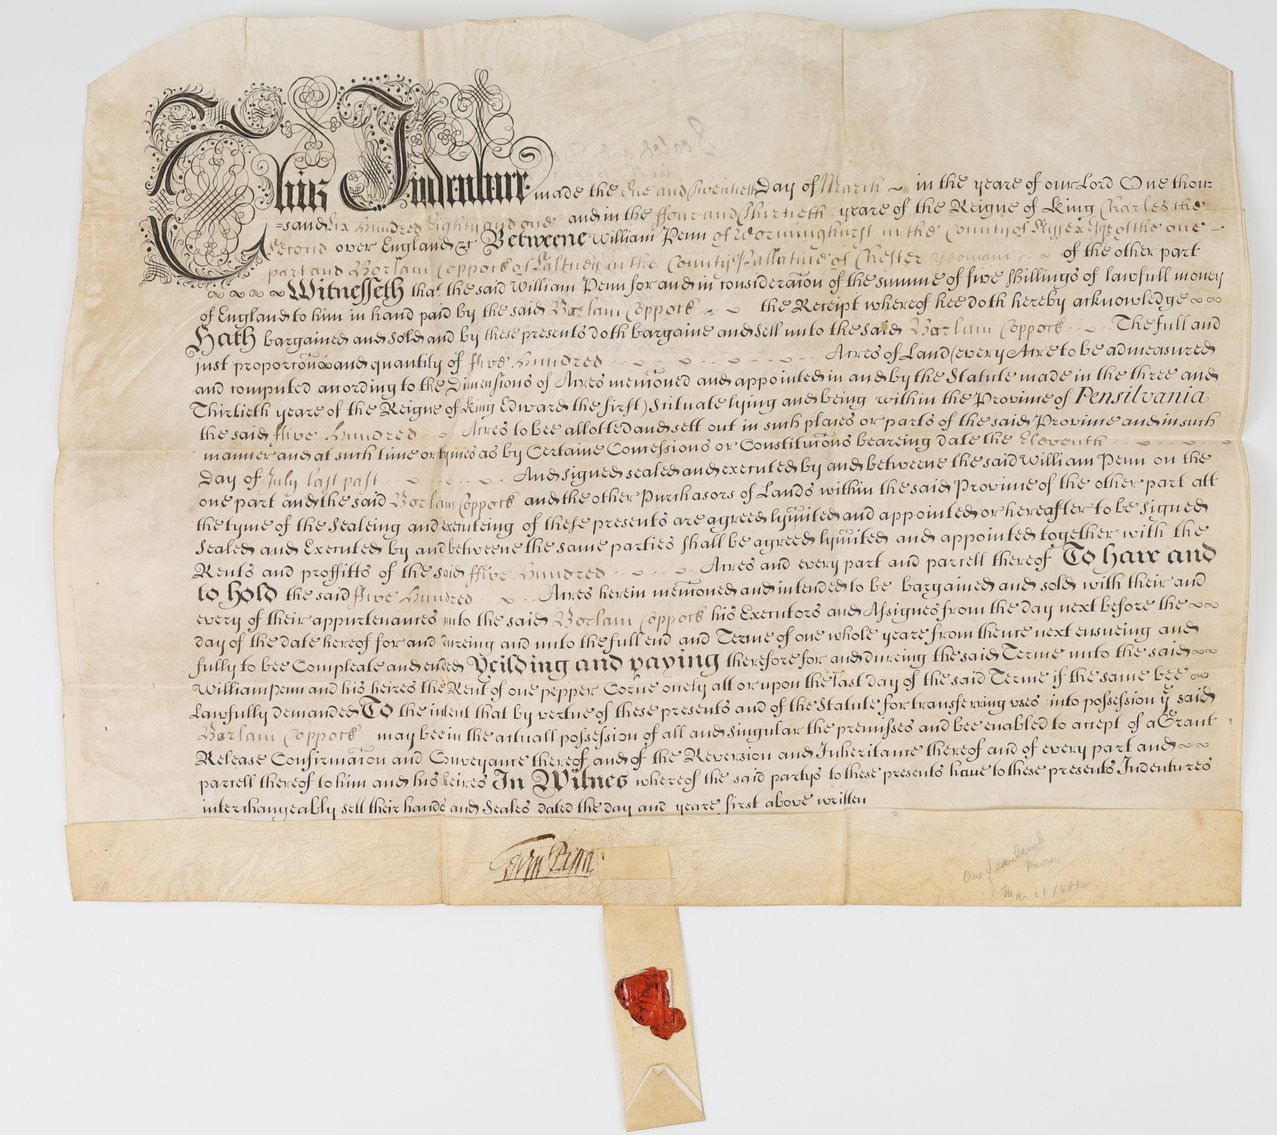 This Indenture made the One and Twentieth Day of March in the yeare of our Lord One thou=
=sand Six Hundred Eighty and one and in the ffour and Thirtieth yeare of the Reigne of King Charles the
Second over England &c Betweene William Penn of Worminghurst in the County of Sussex Esqr of the one
part and Borlam Coppock of Saltney in the County Pallatine of Chester yeoman of the other part
Witnesseth that the said William Penn for and in consideraĉon of the summe of five Shillings of lawfull money
of England to him in hand paid by the said Borlam Coppock the Receipt whereof hee doth hereby acknowledge
Hath bargained and sold and by these presents doth bargaine and sell unto the said Borlam Coppock The full and
just proporĉon and quantity of ffive Hundred Acres of Land (every Acre to be admeasured
and computed according to the Dimensions of Acres menĉoned and appointed in and by the Statute made in the three and
Thirtieth yeare of the Reigne of King Edward the first) Scituate lying and being within the Province of Pensilvania
the said ffive Hundred Acres to bee allotted and sett out in such places or parts of the said Province and in such
manner and at such time or tymes as by Certaine Concessions or Constituĉons beareing date the Eleventh
Day of July last past And signed sealed and executed by and betweene the said William Penn on the
one part and the said Borlam Coppock and the other Purchasors of Lands within the said Province of the other part att
the tyme of the Sealeing and executeing of these presents are agreed lymited and appointed or hereafter to be Signed
Sealed and Executed by and betweene the same parties shall be agreed lymited and appointed together with the
Rents and proffitts of the said ffive Hundred Acres and every part and parcell thereof To have and
to hold the said ffive Hundred Acres herein menĉoned and intended to be bargained and sold with their and
every of their appurtenances unto the said Borlam Coppock his Executors and Assignes from the day next before the
day of the date hereof for and dureing and unto the full end and Terme of one whole yeare from thence next ensueing and
fully to bee Compleate and ended Yeilding and paying therefore for and dureing the said Terme unto the said
William Penn and his heires the Rent of one pepper Corne onely att or upon the last day of the said Terme if the same bee
Lawfully demanded To the intent that by vertue of these presents and of the Statute for transferring uses into possession ye said
Borlam Coppock may bee in the actuall possession of all and singular the premisses and bee enabled to accept of a Grant
Release Confirmaĉon and Conveyance thereof and of the Reversion and Inheritance thereof and of every part and
parcell thereof to him and his heires In Witnes whereof the said partys to these presents have to these presents Indentures
interchangeably sett their hands and Seales dated the day and yeare first above written
Wm Penn
One year
Mar 21 1681